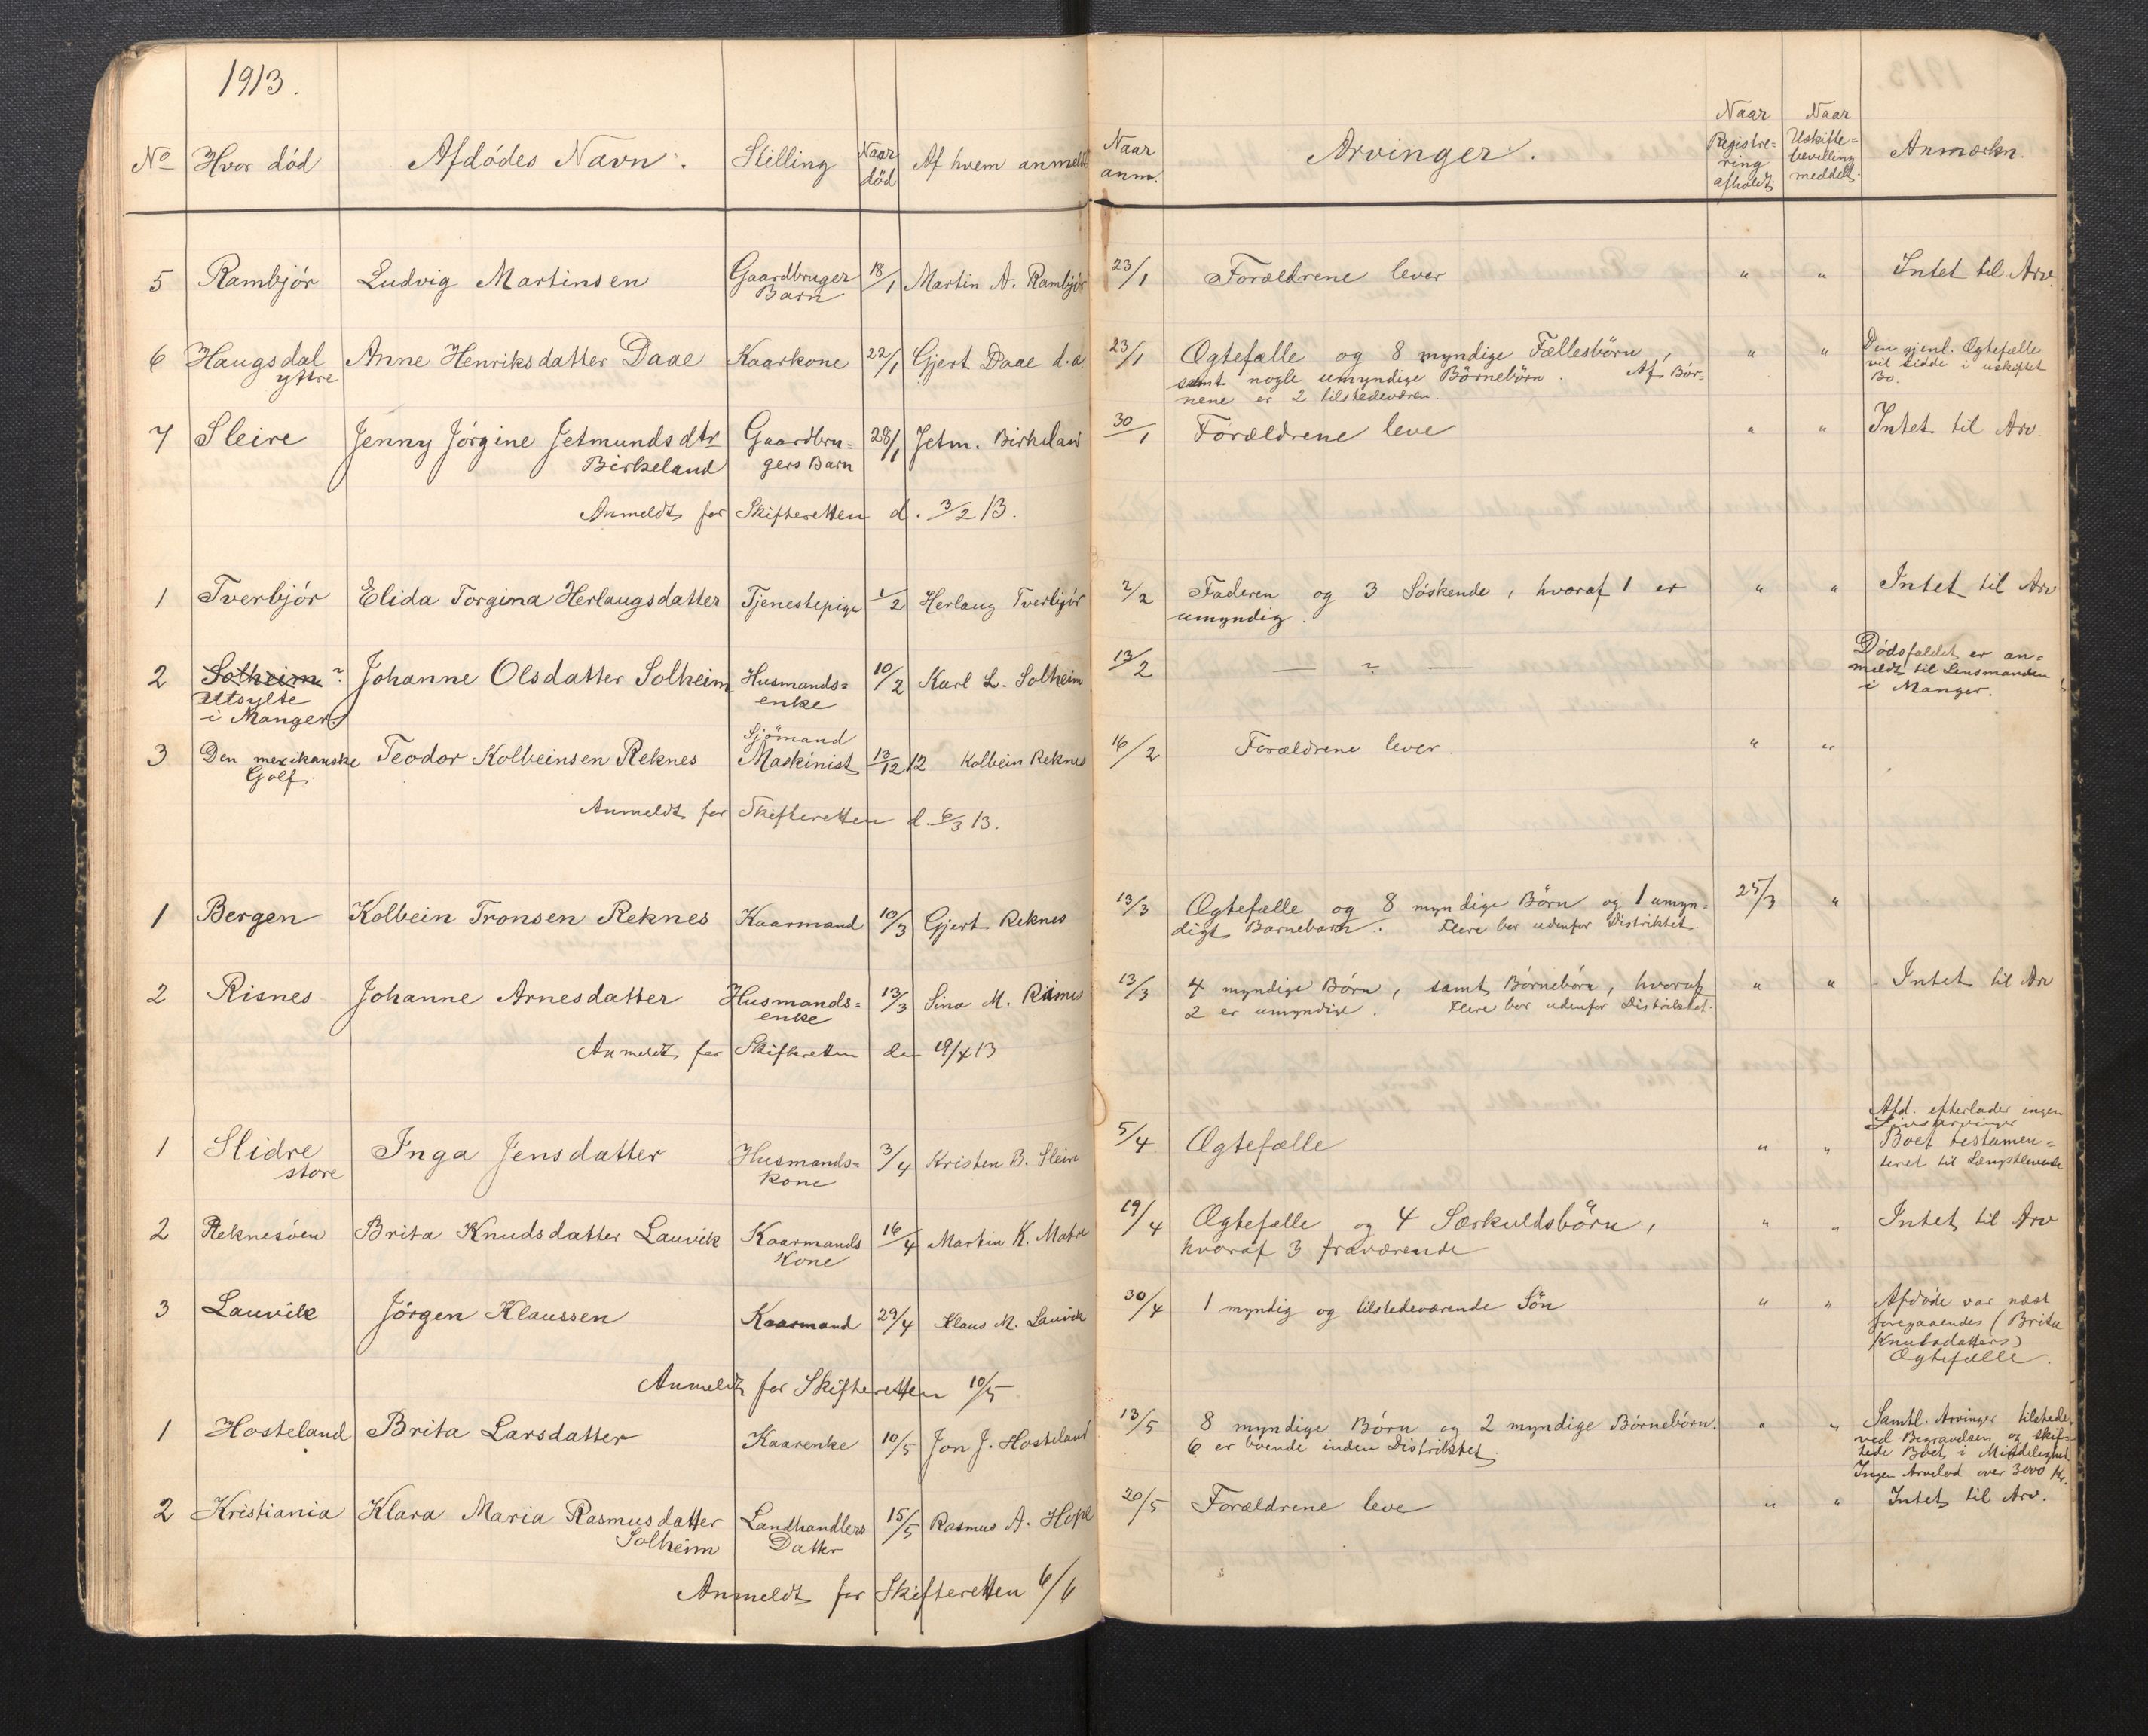 1913.
No Hvor död Afdödes Navn. Stilling Naar död Af hvem anmeldt Naar anm. Arvinger. Naar Registrering afholdt Naar Uskifte=bevilling meddelt Anmærkn.
5 Rambjör Ludvig Martinsen Gaardbruger Barn 18/1 Martin A. Rambjör 23/1 Forældrene lever " " Intet til Arv.
6 Haugsdal yttre Anne Henriksdatter Daae Kaarkone 22/1 Gjert Daae d.a. 23/1 Ægtefælle og 8 myndige Fællesbörn,
samt nogle umyndige Börnebörn. Af Bör=
nene er 2 tilstedeværen. " " Den gjenl. Ægtefælle
vil sidde i uskiftet
Bo.
7 Sleire Jenny Jörgine Jetmundsdtr Birkeland Gaardbru=
gers Barn 28/1 Jetm. Birkeland 30/1 Forældrene leve " " Intet til Arv.
Anmeldt for Skifteretten d. 3/2 13.
1 Tverbjör Elida Torgina Herlaugsdatter Tjenestepige 1/2 Herlaug Tverbjör 2/2 Faderen og 3 Söskende, hvoraf 1 er
umyndig. " " Intet til Arv
2 Solheim ?
Utsylte
i Manger Johanne Olsdatter Solheim Husmands=
enke 10/2 Karl L. Solheim 13/2 — ? — Dödsfaldet er an=
meldt til Lensmanden
i Manger.
3 Den mexikanske
Golf. Teodor Kolbeinsen Reknes Sjömand
Maskinist 13/12 12 Kolbein Reknes 16/2 Forældrene lever. " "
Anmeldt for Skifteretten d. 6/3 13.
1 Bergen Kolbein Tronsen Reknes Kaarmand 10/3 Gjert Reknes 13/3 Ægtefælle og 8 myndige Börn og 1 umyn=
digt Barnebarn. Flere bor udenfor Distriktet. 25/3 "
2 Risnes Johanne Arnesdatter Husmands=
enke 13/3 Sina M. Risnes 13/3 4 myndige Börn, samt Börnebörn, hvoraf
2 er umyndige. Flere bor udenfor Distriktet. " " Intet til Arv
Anmeldt for Skifteretten den 19/4 13
1 Slidre
store Inga Jensdatter Husmands=
kone 3/4 Kristen B. Slein 5/4 Ægtefælle " " Afd. efterlader ingen
Livsarvinger
Boet testamen=
teret til Længstlevende
2 Reknesöen Brita Knudsdatter Lauvik Kaarmands
Kone 16/4 Martin K. Matre 19/4 Ægtefælle og 4 Særkuldsbörn,
hvoraf 3 fraværende " " Intet til Arv
3 Lauvik Jörgen Klaussen Kaarmand 29/4 Klaus M. Lauvik 30/4 1 myndig og tilstedeværende Sön " " Afdöde var næst
foregaaendes (Brita
Knutsdatters)
Ægtefælle.
Anmeldt for Skifteretten 10/5
1 Hosteland Brita Larsdatter Kaarenke 10/5 Jon J. Hosteland 13/5 8 myndige Börn og 2 myndige Börnebörn.
6 er boende inden Distriktet. " " Samtl. Arvinger tilstede
ved Begravelsen og skif=
tede Boet i Mindelighet
Ingen Arvelod over 3000 Kr.
2 Kristiania Klara Maria Rasmusdatter
Solheim Landhandlers
Datter 15/5 Rasmus A. 20/5 Forældrene leve " " Intet til Arv.
Anmeldt for Skifteretten 6/6